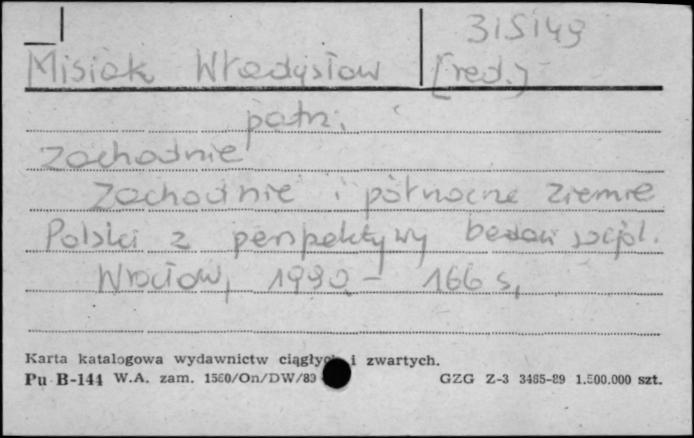 315149
Misiak Władysław [red.]
patrz:
Zachodnie
Zachodnie i północne ziemie
Polski z perspektywy badań socjol.
Wrocław, 1990 - 166 s,
Karta katalogowa wydawnictw ciągłych i zwartych.
Pu B-144 W.A. zam. 1560/On/DW/89 GZG Z-3 3465-89 1.500.000 szt.